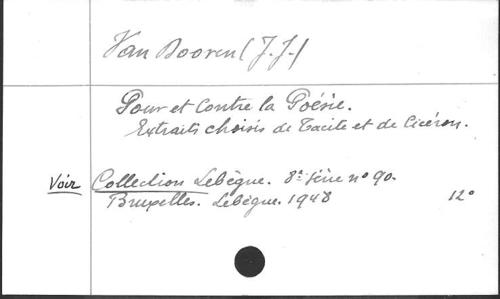 Van Dooren (J. J.)
Pour et Contre la Poésie.
Extraits choisis de Tacite et de Cicéron.
Voir Collection Lebègue. 8e série no 90.
Bruxelles. Lebègue. 1948 12o